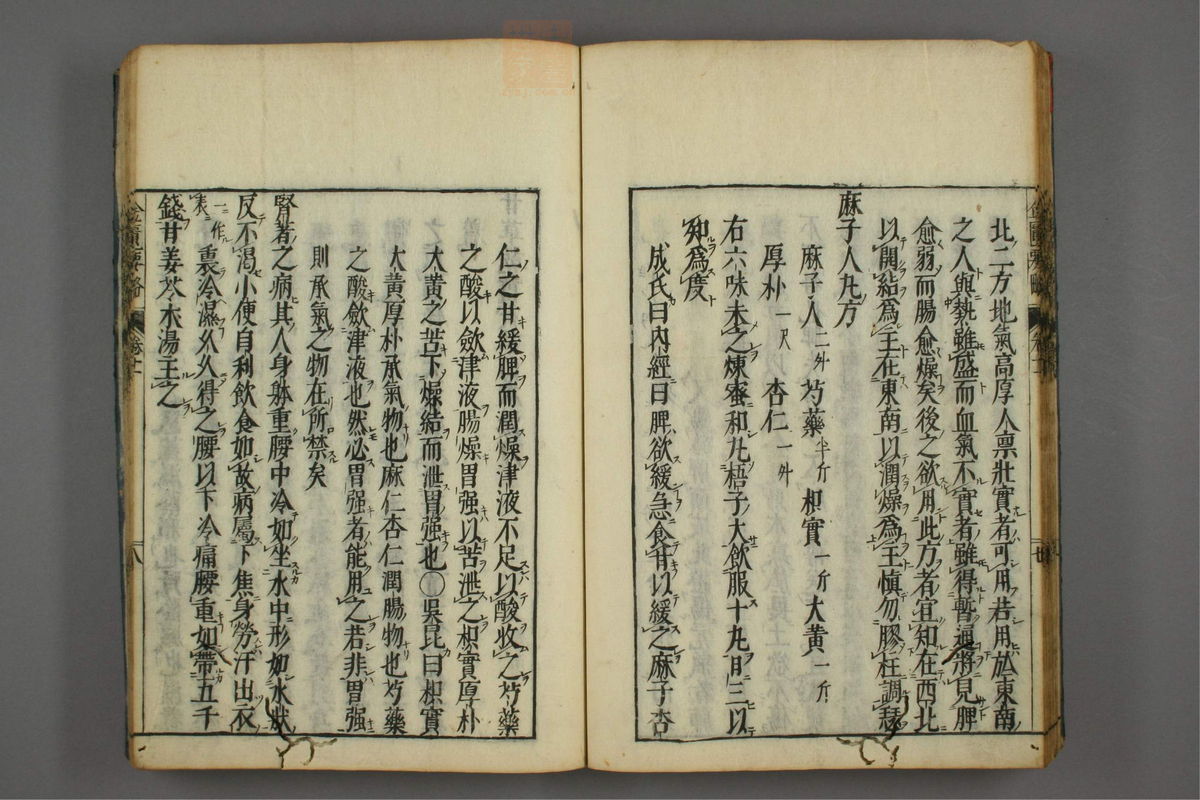 北二方地氣高厚人禀壯實者可用若用於東南
之人與熱雖盛而血氣不實者雖得暫通將見脾
愈弱而腸愈燥矣後之欲用此方者宜知在西北
以開結為主在東南以潤燥為主慎勿膠柱調瑟
麻子人丸方
麻子人二升 芍藥半斤 枳實一斤 大黃一斤
厚朴一尺 杏仁一升
右六味末之煉蜜和丸梧子大飲服十丸日三以
知為度
成氏曰內經曰脾欲緩急食甘以緩之麻子杏
仁之甘緩脾而潤燥津液不足以酸收之芍藥
之酸以斂津液腸燥胃强以苦泄之枳實厚朴
大黃之苦下燥結而泄胃强也〇吳昆曰枳實
大黃厚朴承氣物也麻仁杏仁潤腸物也芍藥
之酸斂津液也然必胃强者能用之若非胃强
則承氣之物在所禁矣
腎著之病其人身躰重腰中冷如坐水中形如水狀
反不渴小便自利飲食如故病屬下焦身勞汗出衣
一作表 裏冷濕久久得之腰以下冷痛腰重如帶五千
錢甘姜苓朮湯主之
金匱要略 卷十一 八